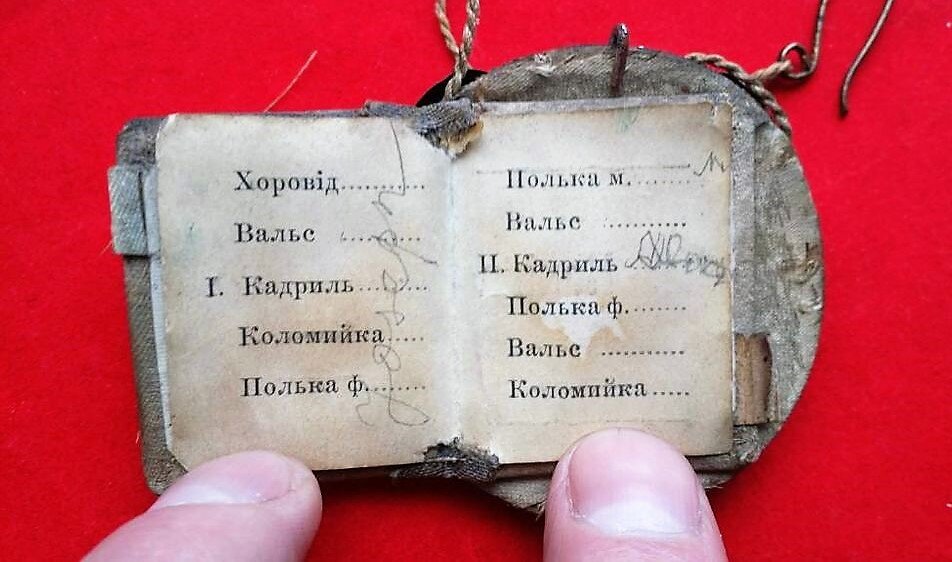 Хоровід..........
Вальс ..........
I. Кадриль..........
Коломийка.....
Полька ф........
Полька м.........
Вальс ..........
II. Кадриль
Полька ф........
Вальс ...........
Коломийка.....